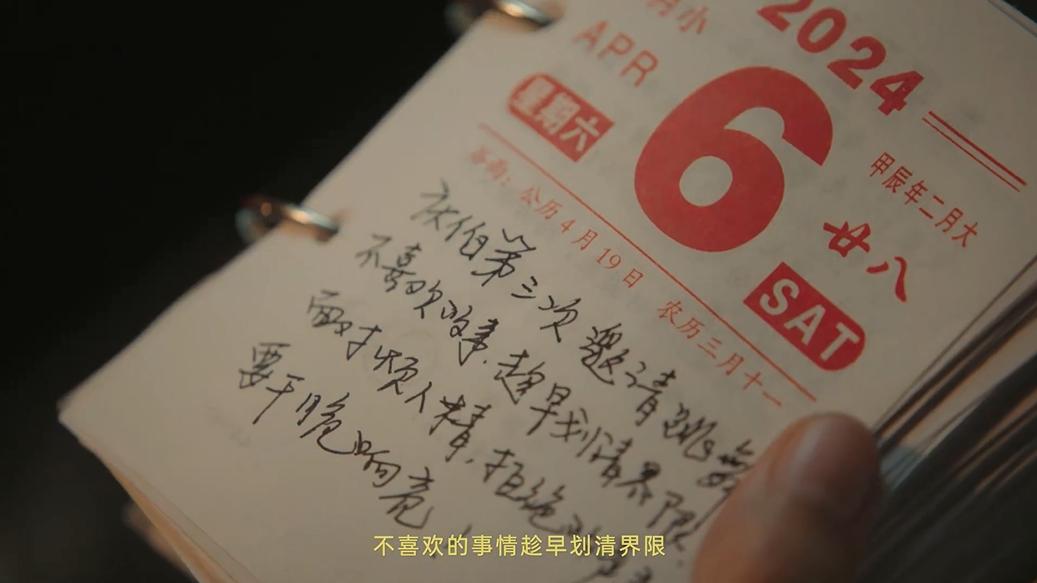 月小
2024
APR
6
星期六
甲辰年二月大
廿八
SAT
谷雨：公历4月19日 农历三月十一
伯第三次邀请跳舞
不喜欢的事，趁早划清界限
面对烦人精，拒绝
要干脆响亮
不喜欢的事情趁早划清界限